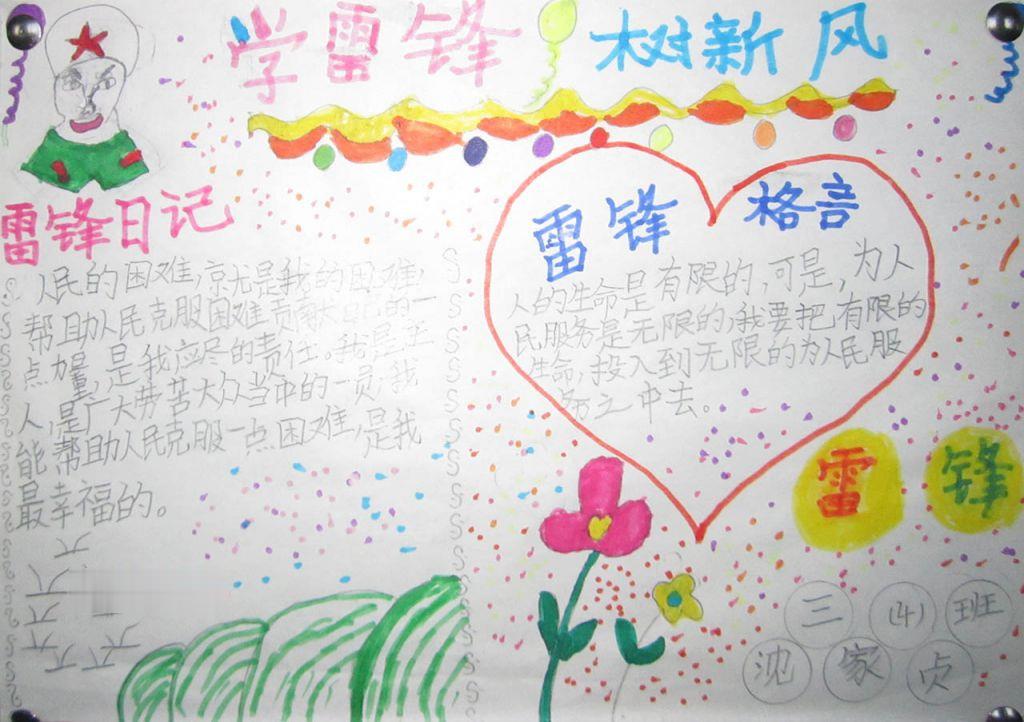 学雷锋 树新风
雷锋日记
人民的困难,就是我的困难,
帮助人民克服困难贡献自己的一
点力量,是我应尽的责任。我是主
人,是广大劳苦大众当中的一员,我
能帮助人民克服一点困难,是我
最幸福的。
雷锋 格言
人的生命是有限的,可是,为人
民服务是无限的,我要把有限的
生命,投入到无限的为人民服
务之中去。
雷 锋
三 (4) 班
沈 家 贞